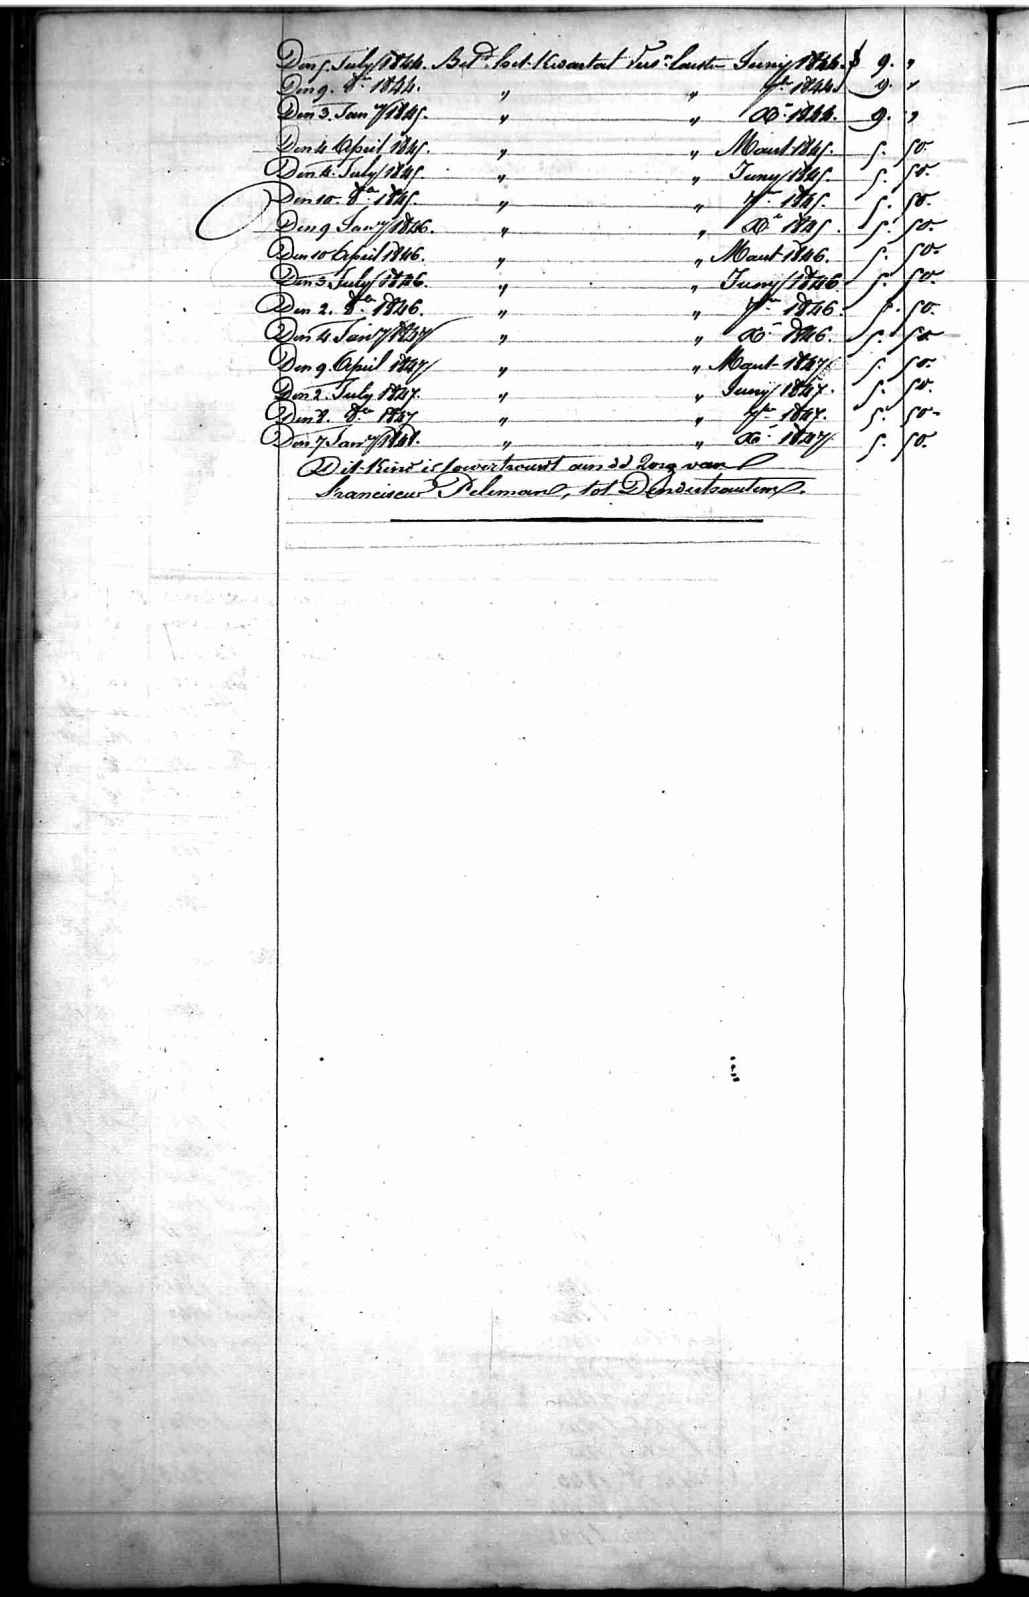 Den 5. July 1844. Bet.d het Kwartal Vers.n laeste Juny 1844. f 9. "
Den 9. 8.re 1844. " " 7.re 1844. 9. "
Den 3. Jan.ry 1845. " " X.re 1844. 9. "
Den 4. April 1845. " " Maert 1845. 5. 50.
Den 4. July 1845. " " Juny 1845. 5. 50.
Den 10. 8.re 1845. " " 7.re 1845. 5. 50.
Den 9 Jan.ry 1846. " " X.re 1845. 5. 50.
Den 10 April 1846. " " Maert 1846. 5. 50.
Den 3 July 1846. " " Juny 1846. 5. 50.
Den 2. 8.re 1846. " " 7.re 1846. 5. 50.
Den 4. Jan.ry 1847 " " X.re 1846. 5. 50.
Den 9. April 1847 " " Maert 1847 5. 50.
Den 2. July 1847. " " Juny 1847. 5. 50.
Den 8. 8.re 1847 " " 7.re 1847. 5. 50.
Den 7 Jan.ry 1848. " " X.re 1847 5. 50.
Dit Kind is toevertrouwt aen de Zorg van
Franciscus Peleman, tot Denderhautem.